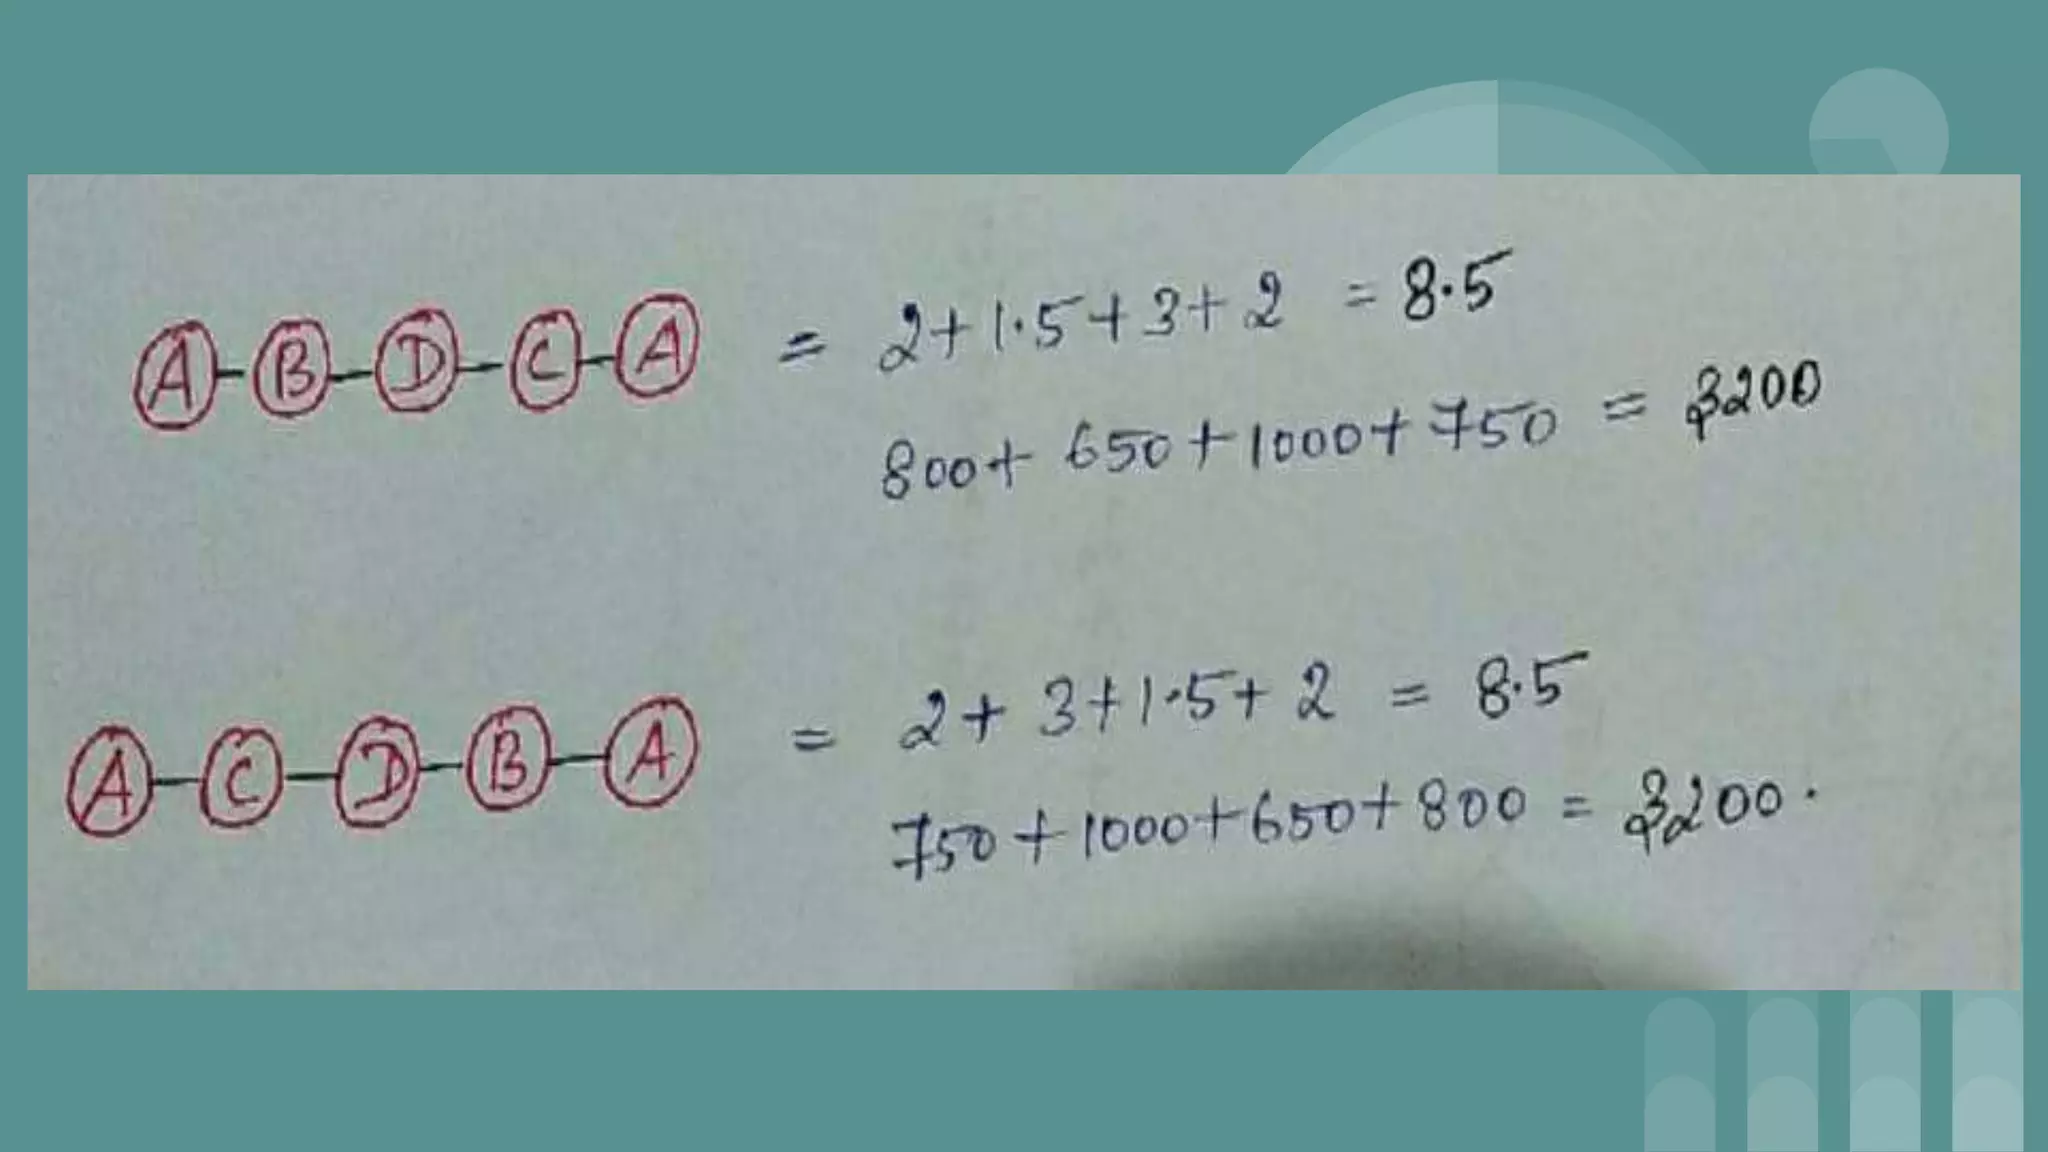 A-B-D-C-A = 2+1.5+3+2 = 8.5
800+ 650+1000+750 = 3200
A-C-D-B-A = 2+ 3+1.5+ 2 = 8.5
750+1000+650+800 = 3200.